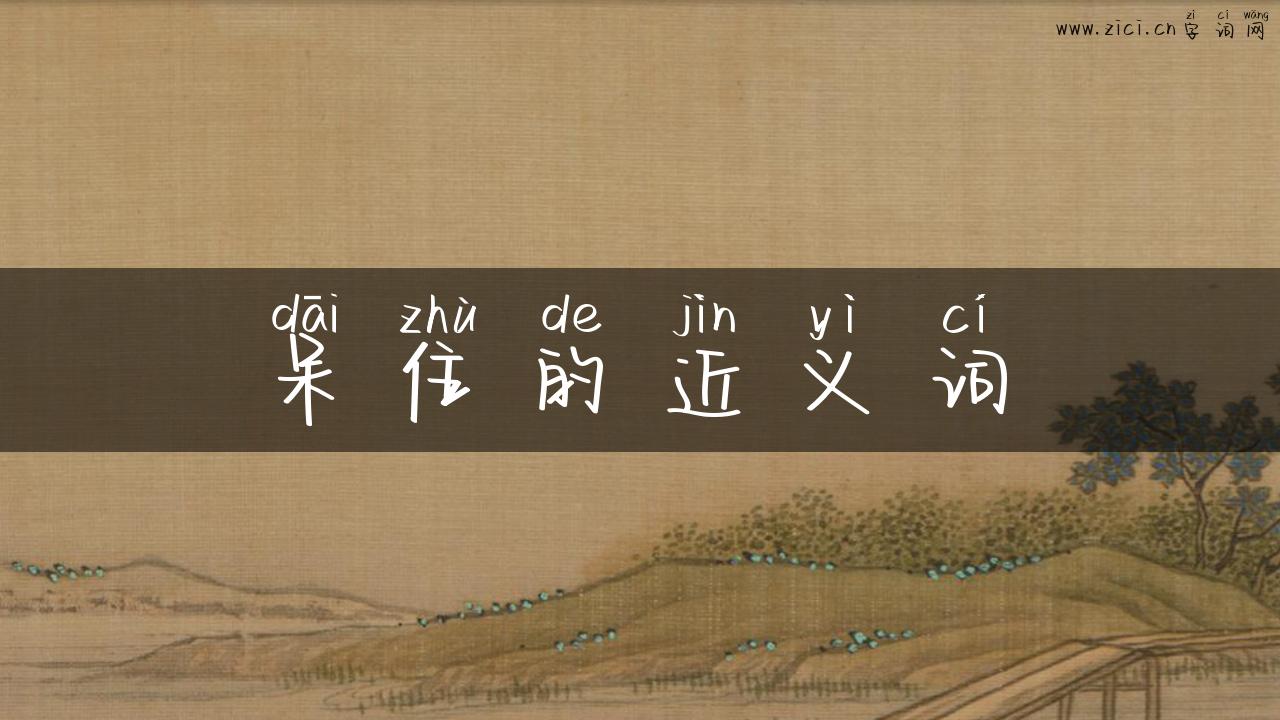 zì cí wǎng
www.zici.cn字词网
dāi zhù de jìn yì cí
呆住的近义词